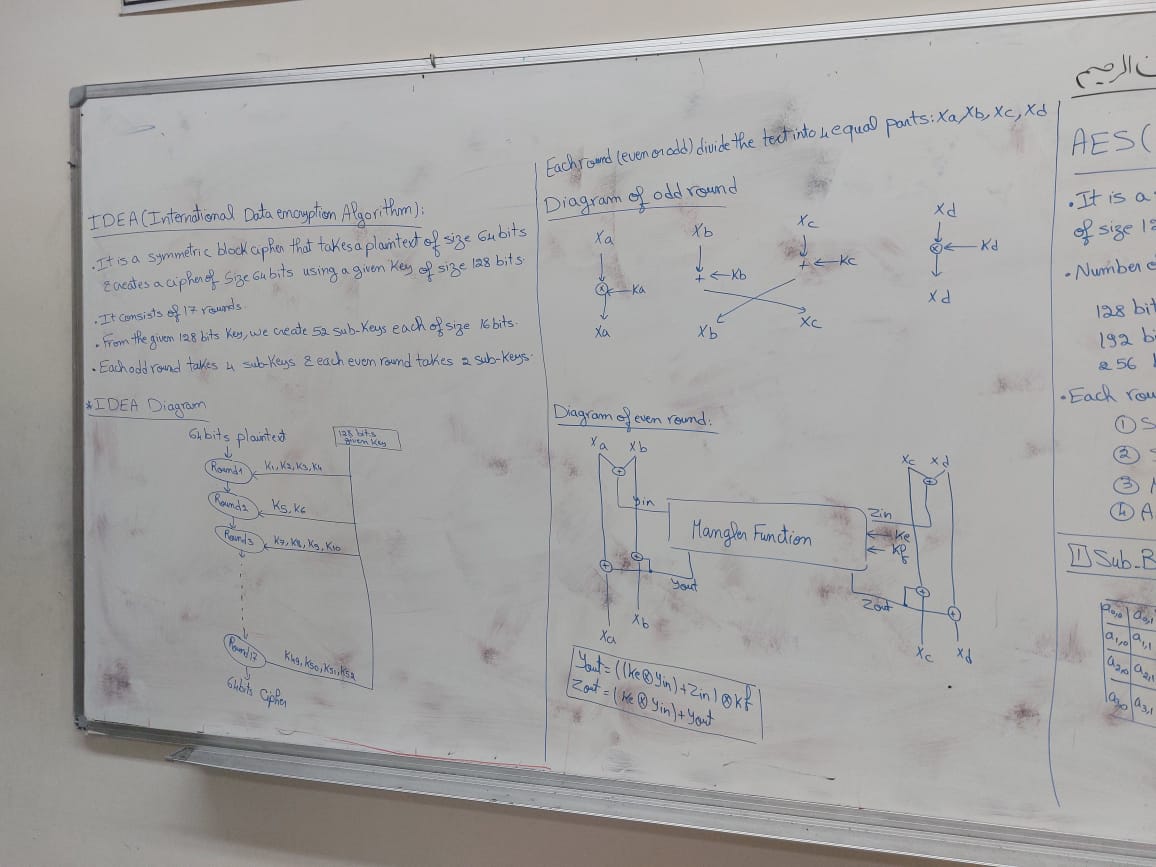 IDEA (International Data encryption Algorithm):
. It is a symmetric block cipher that takes a plaintext of size 64 bits
& creates a cipher of size 64 bits using a given Key of size 128 bits.
. It consists of 17 rounds.
. From the given 128 bits Key, we create 52 sub-Keys each of size 16 bits.
. Each odd round takes 4 sub-Keys & each even round takes 2 sub-Keys.
* IDEA Diagram
64 bits plaintext
128 bits
given Key
Round 1
K1, K2, K3, K4
Round 2
K5, K6
Round 3
K7, K8, K9, K10
Round 17
K49, K50, K51, K52
64 bits Cipher
Each round (even or odd) divide the text into 4 equal parts: Xa, Xb, Xc, Xd
Diagram of odd round
Xa Xb Xc Xd
⊗ Ka + Kb + Kc ⊗ Kd
Xa Xb Xc Xd
Diagram of even round:
Xa Xb Xc Xd
Yin Zin
Mangler Function
Ke
Kf
Yout Zout
Xa Xb Xc Xd
Yout = ((Ke ⊗ Yin) + Zin) ⊗ Kf
Zout = (Ke ⊗ Yin) + Yout
الرحيم
AES (
. It is a
of size 12
. Number o
128 bit
192 bi
256
. Each rou
① S
②
③
④ A
1 Sub-B
a0,0 a0,1
a1,0 a1,1
a2,0 a2,1
a3,0 a3,1